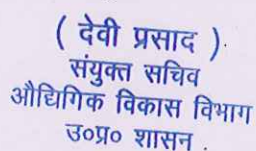 ( देवी प्रसाद ).
संयुक्त सचिव
औद्यिगिक विकास विभाग
उ०प्र० शासन .